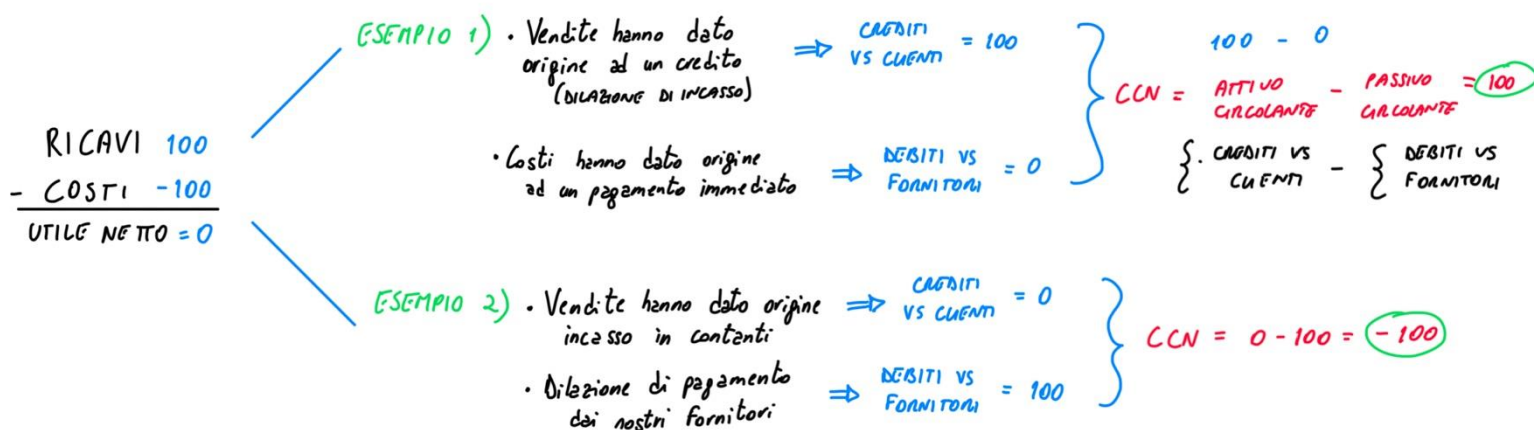 RICAVI 100
- COSTI -100
UTILE NETTO = 0
ESEMPIO 1)
• Vendite hanno dato
origine ad un credito
(DILAZIONE DI INCASSO)
⇒ CREDITI
VS CLIENTI = 100
• Costi hanno dato origine
ad un pagamento immediato
⇒ DEBITI VS
FORNITORI = 0
100 - 0
CCN = ATTIVO
CIRCOLANTE - PASSIVO
CIRCOLANTE = 100
{ • CREDITI VS
CLIENTI - { DEBITI VS
FORNITORI
ESEMPIO 2)
• Vendite hanno dato origine
incasso in contanti
⇒ CREDITI
VS CLIENTI = 0
• Dilazione di pagamento
dai nostri fornitori
⇒ DEBITI VS
FORNITORI = 100
CCN = 0 - 100 = -100